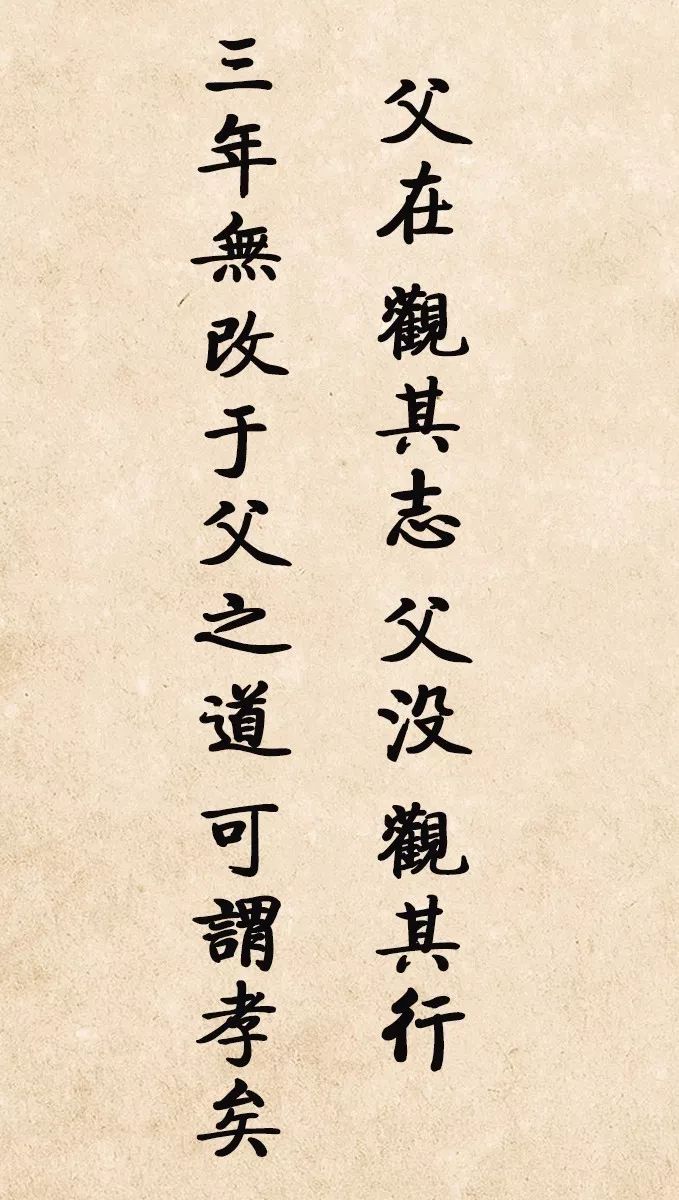 父在 觀其志 父没 觀其行
三年無改于父之道 可謂孝矣